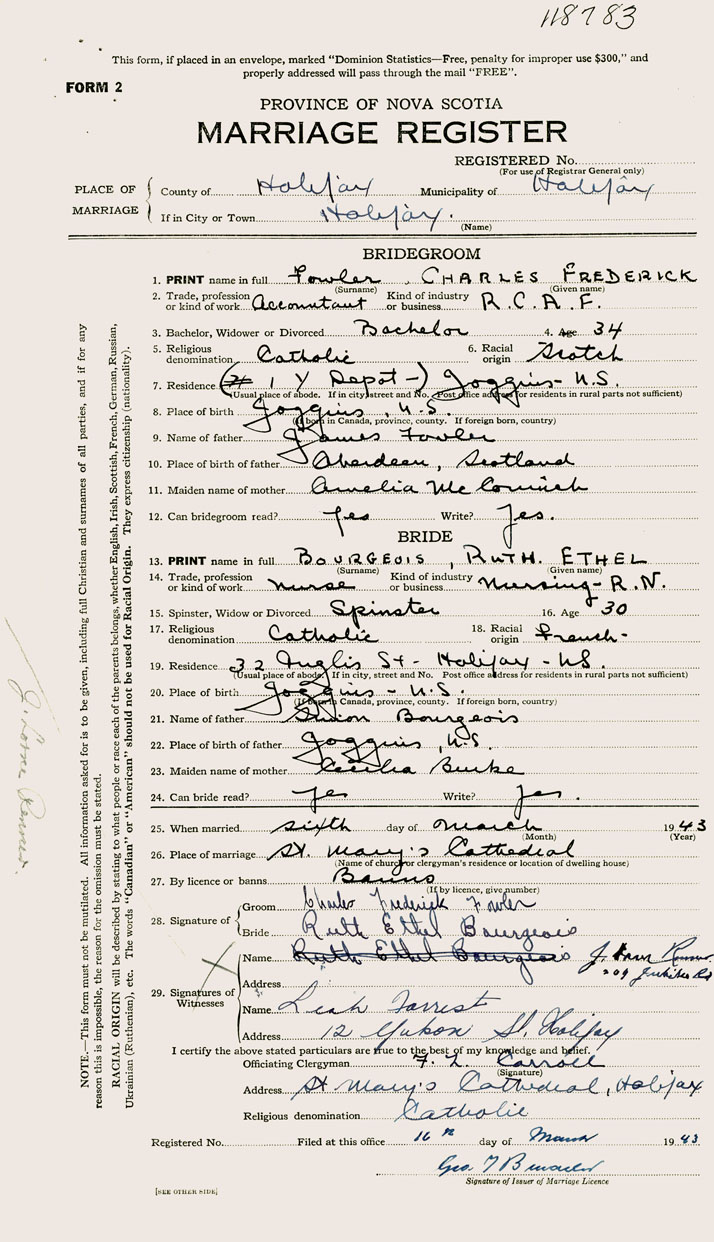 118783
This form, if placed in an envelope, marked "Dominion Statistics—Free, penalty for improper use $300," and
properly addressed will pass through the mail "FREE".
FORM 2
PROVINCE OF NOVA SCOTIA
MARRIAGE REGISTER
REGISTERED No.
(For use of Registrar General only)
PLACE OF MARRIAGE
County of Halifax Municipality of Halifax
If in City or Town Halifax.
(Name)
BRIDEGROOM
1. PRINT name in full Fowler, CHARLES FREDERICK
(Surname) (Given name)
2. Trade, profession or kind of work Accountant Kind of industry or business R.C.A.F.
3. Bachelor, Widower or Divorced Bachelor 4. Age 34
5. Religious denomination Catholic 6. Racial origin Scotch
7. Residence (# 1 Y Depot-) Joggins - N.S.
(Usual place of abode. If in city, street and No. Post office address for residents in rural parts not sufficient)
8. Place of birth Joggins, N.S.
(If born in Canada, province, county. If foreign born, country)
9. Name of father James Fowler
10. Place of birth of father Aberdeen, Scotland
11. Maiden name of mother Amelia
12. Can bridegroom read? Yes Write? Yes.
BRIDE
13. PRINT name in full BOURGEOIS, RUTH. ETHEL
(Surname) (Given name)
14. Trade, profession or kind of work Nurse Kind of industry or business Nursing - R.N.
15. Spinster, Widow or Divorced Spinster 16. Age 30
17. Religious denomination Catholic 18. Racial origin French-
19. Residence 32 Inglis St - Halifax - NS.
(Usual place of abode. If in city, street and No. Post office address for residents in rural parts not sufficient)
20. Place of birth Joggins - N.S.
(If born in Canada, province, county. If foreign born, country)
21. Name of father Simon Bourgeois
22. Place of birth of father Joggins, N.S.
23. Maiden name of mother Cecilia Burke
24. Can bride read? Yes Write? Yes.
25. When married sixth day of March 1943
(Month) (Year)
26. Place of marriage St. Mary's Cathedral
(Name of church or clergyman's residence or location of dwelling house)
27. By licence or banns Banns
(If by licence, give number)
28. Signature of Groom Charles Frederick Fowler
Bride Ruth Ethel Bourgeois
29. Signatures of Witnesses
Name Ruth Ethel Bourgeois J.
Address 209
Name Leah Forrest
Address 12 Yukon St, Halifax
I certify the above stated particulars are true to the best of my knowledge and belief.
Officiating Clergyman F. L. Carroll
(Signature)
Address St Mary's Cathedral, Halifax
Religious denomination Catholic
Registered No. Filed at this office 16th day of March 1943
Geo
Signature of Issuer of Marriage Licence
[SEE OTHER SIDE]
NOTE.—This form must not be mutilated. All information asked for is to be given, including full Christian and surnames of all parties, and if for any
reason this is impossible, the reason for the omission must be stated.
RACIAL ORIGIN will be described by stating to what people or race each of the parents belongs, whether English, Irish, Scottish, French, German, Russian,
Ukrainian (Ruthenian), etc. The words "Canadian" or "American" should not be used for Racial Origin. They express citizenship (nationality).